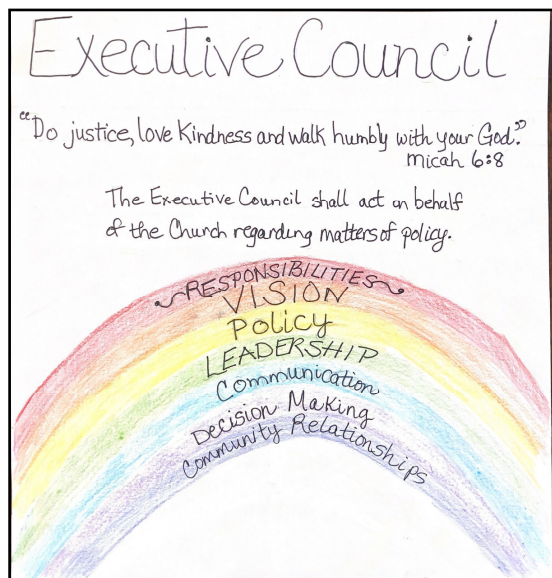 Executive Council
“Do justice, love Kindness and walk humbly with your God.”
Micah 6:8
The Executive Council shall act on behalf
of the Church regarding matters of policy.
~RESPONSIBILITIES~
VISION
Policy
LEADERSHIP
Communication
Decision Making
Community Relationships